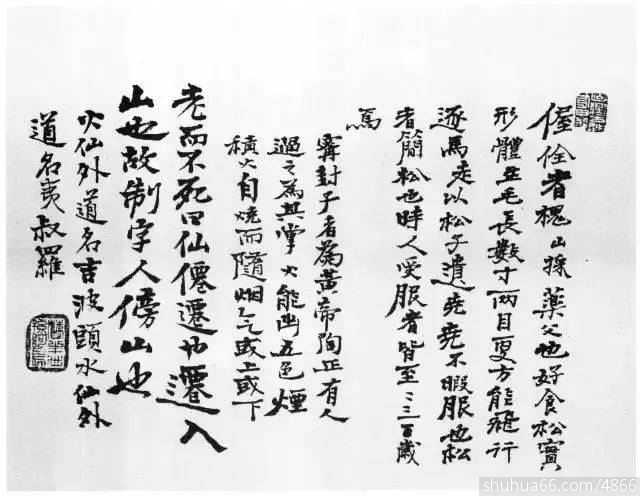 偓佺者槐山採藥父也好食松實
形體生毛長數寸兩目更方能飛行
逐馬走以松子遺堯堯不暇服也松
者簡松也時人受服者皆至二三百歲
焉
甯封子者為黃帝陶正有人
過之為其掌火能出五色煙
積火自燒而隨烟气或上或下
老而不死曰仙僊遷也遷入
山也故制字人傍山也
火仙外道名吉波頭水仙外
道名夷叔羅
shuhua66.com/4866